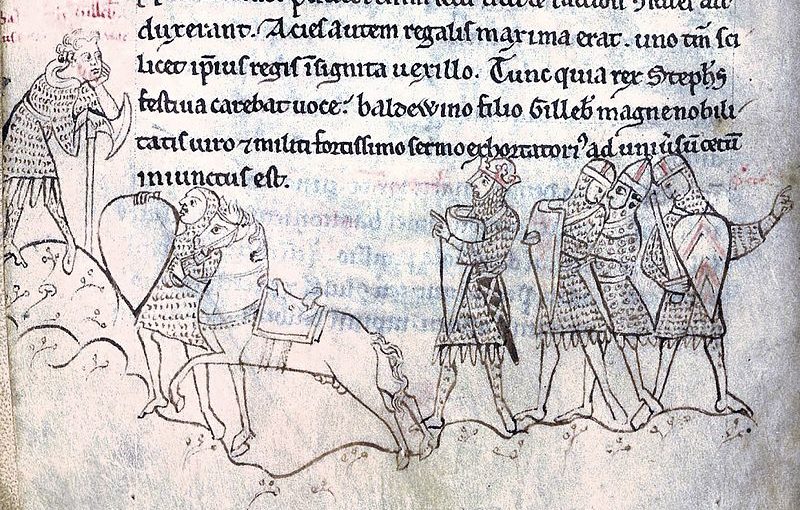 duxerant. Acies autem regalis maxima erat. uno tm̄ sci
licet ip̄ius regis ī signita uexillo. Tunc quia rex Stephs̄
festiua carebat uoce: baldewino filio Gilleb̄ magne nobili
tatis uiro ⁊ militi fortissimo sermo exhortatori᷒ ad unius̄ū cetū
iniunctus est.